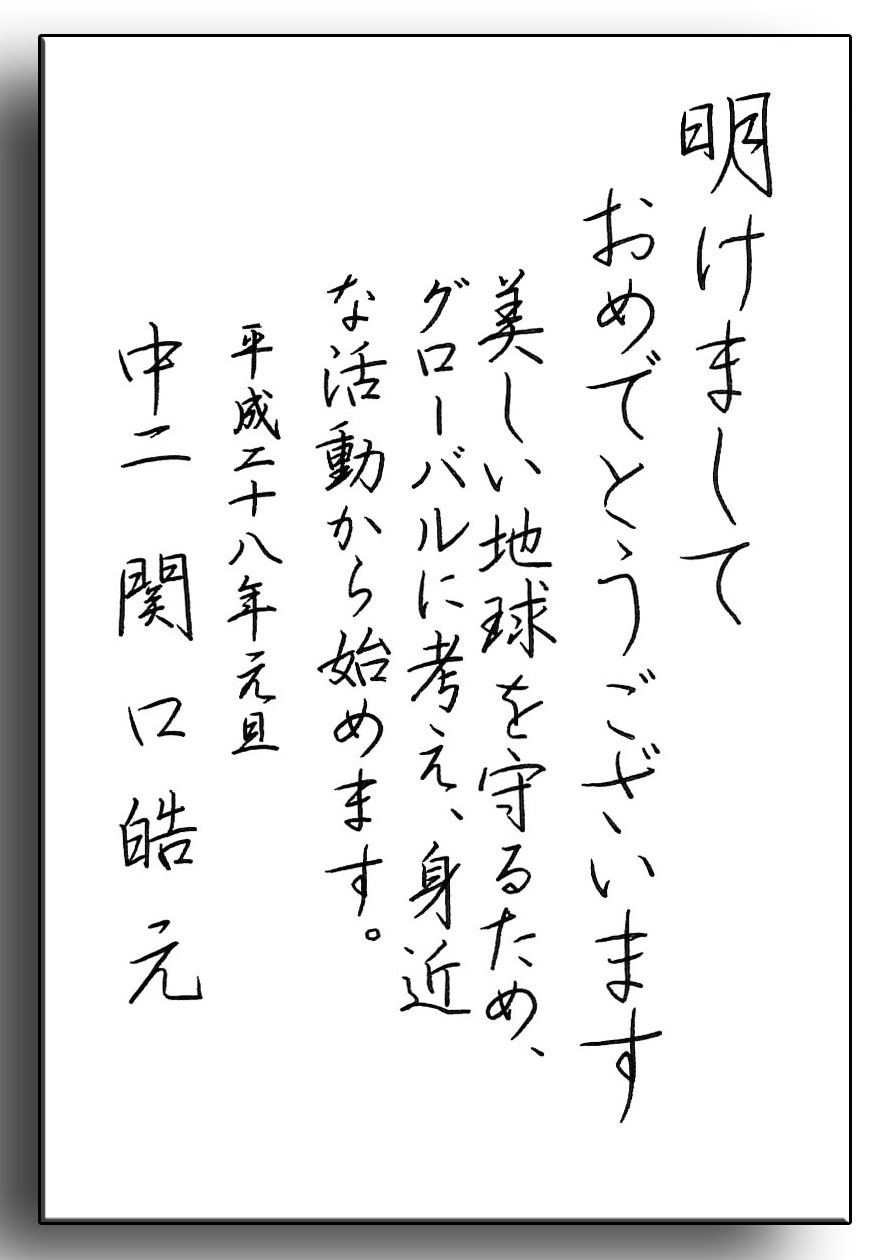 明けまして
おめでとうございます
美しい地球を守るため、
グローバルに考え、身近
な活動から始めます。
平成二十八年元旦
中二 関口皓元